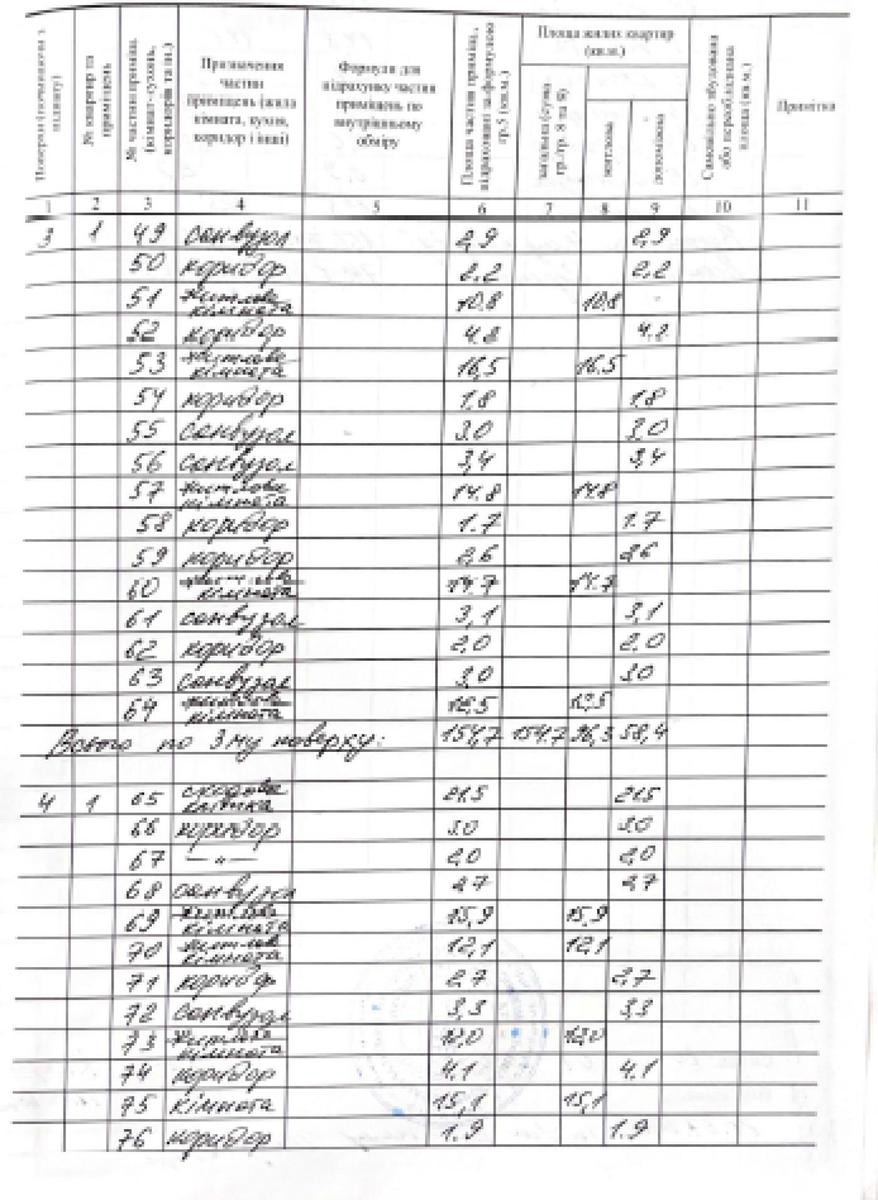 Поверхи (починаючи з підвалу)
№ квартир та приміщень
№ частин приміщ. (кімнат-кухонь, коридорів та ін.)
Призначення частин приміщень (жила кімната, кухня, коридор і інші)
Формули для підрахунку частин приміщень по внутрішньому обміру
Площа частин приміщ., підрахована за формулою гр.5 (кв.м.)
Площа жилих квартир (кв.м.)
загальна (сума гр./гр. 8 та 9)
житлова
допоміжна
Самовільно збудована або переобладнана площа (кв.м.)
Примітка
1 2 3 4 5 6 7 8 9 10 11
3 1 49 санвузол 2,9 2,9
50 коридор 2.2 2,2
51 житлова кімната 10.8 10.8
52 коридор 4.8 4.8
53 житлова кімната 16,5 16.5
54 коридор 1.8 1.8
55 санвузол 3,0 3,0
56 санвузол 3,4 3,4
57 житлова кімната 14.8 14.8
58 коридор 1.7 1.7
59 коридор 2,6 2,6
60 житлова кімната 14.7 14.7
61 санвузол 3,1 3,1
62 коридор 2,0 2,0
63 санвузол 3,0 3,0
64 житлова кімната
Всього по 3 му поверху: 154,7 154.7 96,3 58,4
4 1 65 сходова клітина 21.5 21.5
66 коридор 3.0 3.0
67 — " — 2,0 2,0
68 санвузол 2.7 2.7
69 житлова кімната 15,9 15,9
70 житлова кімната 12,1 12,1
71 коридор 2,7 2,7
72 санвузол 3,3 3.3
73 житлова кімната
74 коридор 4,1 4.1
75 кімната 15,1 15,1
76 коридор 1.9 1.9